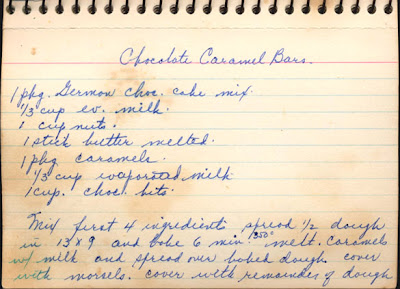 Chocolate Caramel Bars.
1 pkg. German choc. cake mix
1/3 cup ev. milk.
1 cup nuts.
1 stick butter melted.
1 pkg caramels.
1/3 cup evaporated milk
1 cup. choc. bits.
Mix first 4 ingredients spread 1/2 dough
in 13x9 and bake 6 min. 350° melt. caramels
w/ milk and spread over baked dough. cover
with morsels. cover with remainder of dough